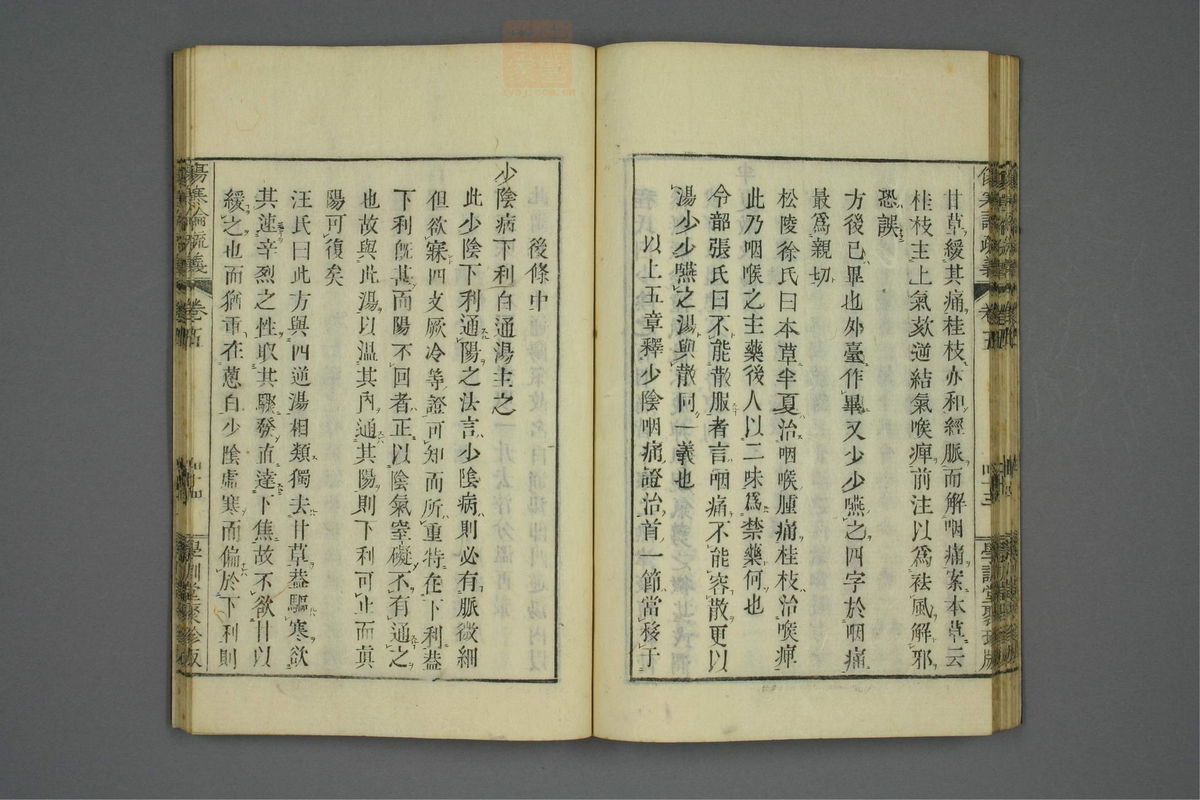 傷寒論疏義
卷五
四十三
學訓堂聚珍版
甘草緩其痛桂枝亦和經脈而解咽痛案本草云
桂枝主上氣欬逆結氣喉痺前注以爲袪風解邪
恐誤
方後已畢也外臺作畢又少少嚥之四字於咽痛
最爲親切
松陵徐氏曰本草半夏治咽喉腫痛桂枝治喉痺
此乃咽喉之主藥後人以二味爲禁藥何也
令韶張氏曰不能散服者言咽痛不能容散更以
湯少少嚥之湯與散同一義也
以上五章釋少陰咽痛證治首一節當移于
後條中
少陰病下利白通湯主之
此少陰下利通陽之法言少陰病則必有脈微細
但欲寐四支厥冷等證可知而所重特在下利葢
下利旣甚而陽不回者正以陰氣窒礙不有通之
也故與此湯以溫其內通其陽則下利可止而眞
陽可復矣
汪氏曰此方與四逆湯相類獨去甘草葢驅寒欲
其速辛烈之性取其驟發直達下焦故不欲甘以
緩之也而猶重在蔥白少陰虛寒而偏於下利則
傷寒論疏義
卷五
四十四
學訓堂聚珍版